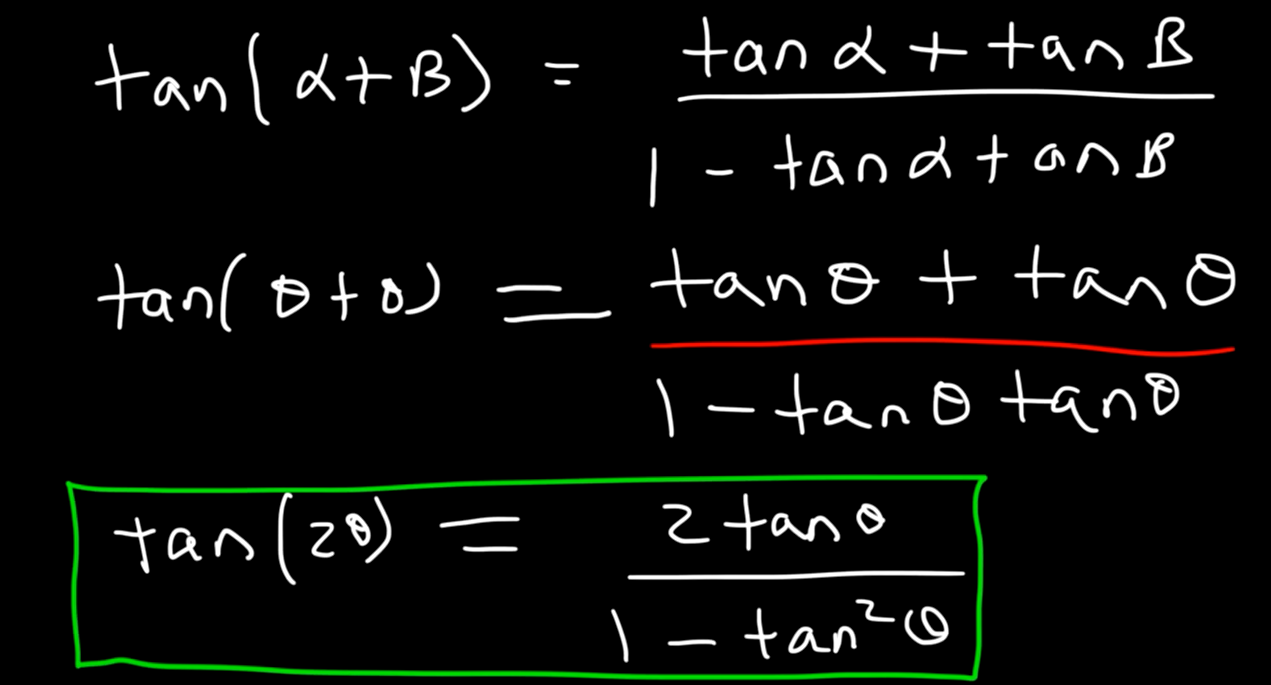 tan(α+β) = (tan α + tan β) / (1 - tan α tan β)
tan(θ+θ) = (tan θ + tan θ) / (1 - tan θ tan θ)
tan(2θ) = (2 tan θ) / (1 - tan²θ)